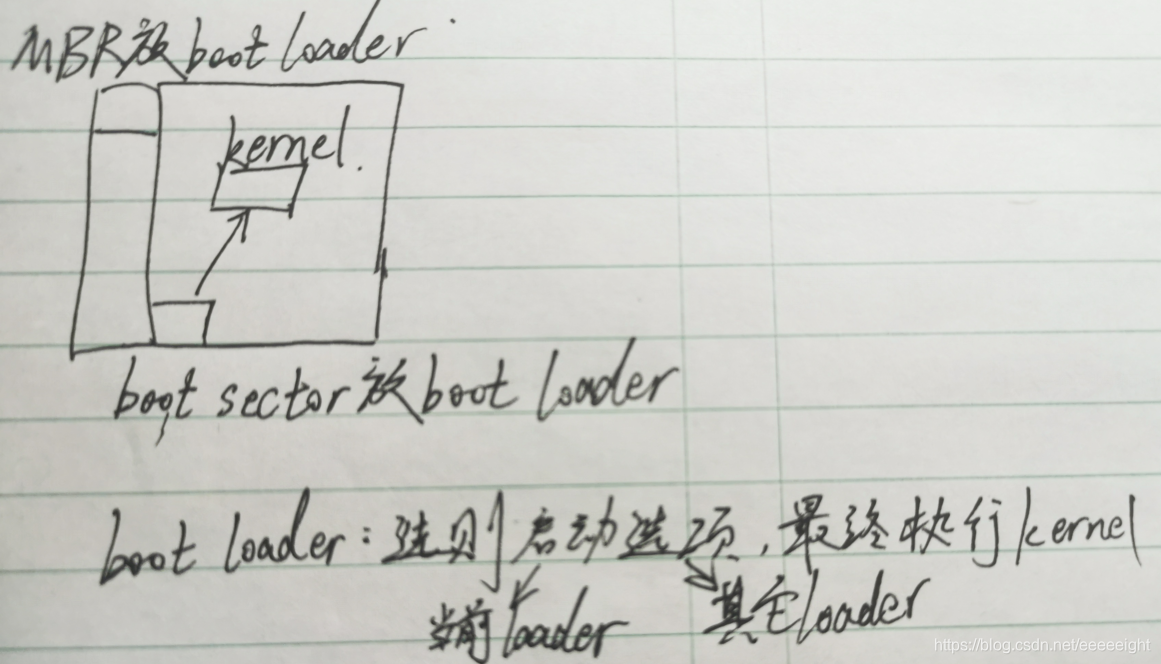 MBR放boot loader
kernel.
boot sector放boot loader
boot loader:选则启动选项,最终执行kernel
当前loader
其它loader
https://blog.csdn.net/eeeeeight